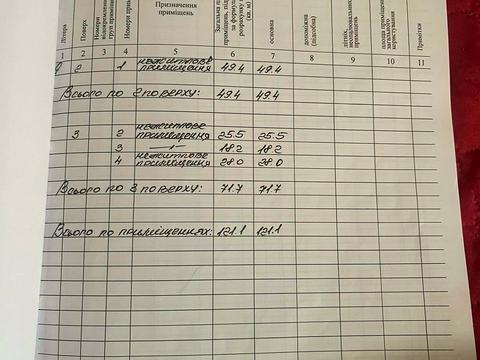 Літера
Поверх
Номери
відокремлени
груп приміщен
Номери примі
Призначення
приміщень
Загальна пл
приміщень, під
за формул
розрахунку
(кв. м)
основна
допоміжна
(підсобна)
літніх,
неопалювальних
приміщень
площа приміщен
загального
користування
Примітки
1 2 3 4 5 6 7 8 9 10 11
2 1 нежитлове приміщення 49.4 49.4
Всього по 2 поверху: 49.4 49.4
3 2 нежитлове приміщення 25.5 25.5
3 —"— 18.2 18.2
4 нежитлове приміщення 28.0 28.0
Всього по 3 поверху: 71.7 71.7
Всього по приміщеннях: 121.1 121.1